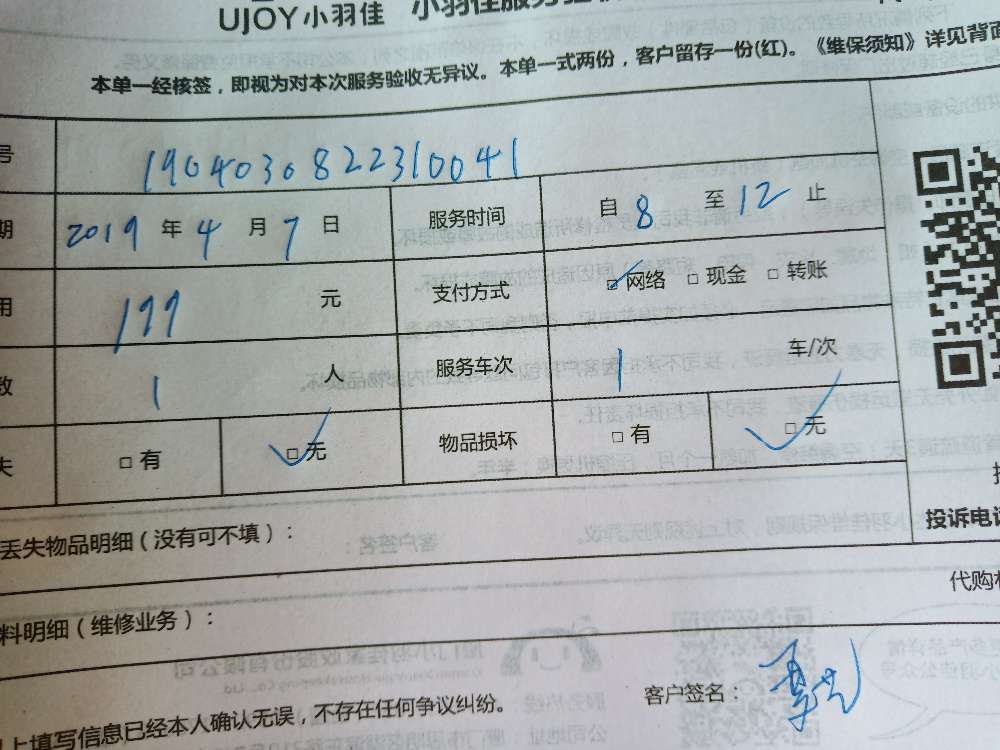 UJOY 小羽佳 小羽佳服务验
本单一经核签，即视为对本次服务验收无异议。本单一式两份，客户留存一份(红)。《维保须知》详见背面
号 1904030822310041
期 2019 年 4 月 7 日 服务时间 自 8 至 12 止
用 199 元 支付方式 网络 现金 转账
数 1 人 服务车次 1 车/次
失 有 无 物品损坏 有 无
投诉电话
丢失物品明细（没有可不填）：
代购材
料明细（维修业务）：
客户签名：
上填写信息已经本人确认无误，不存在任何争议纠纷。